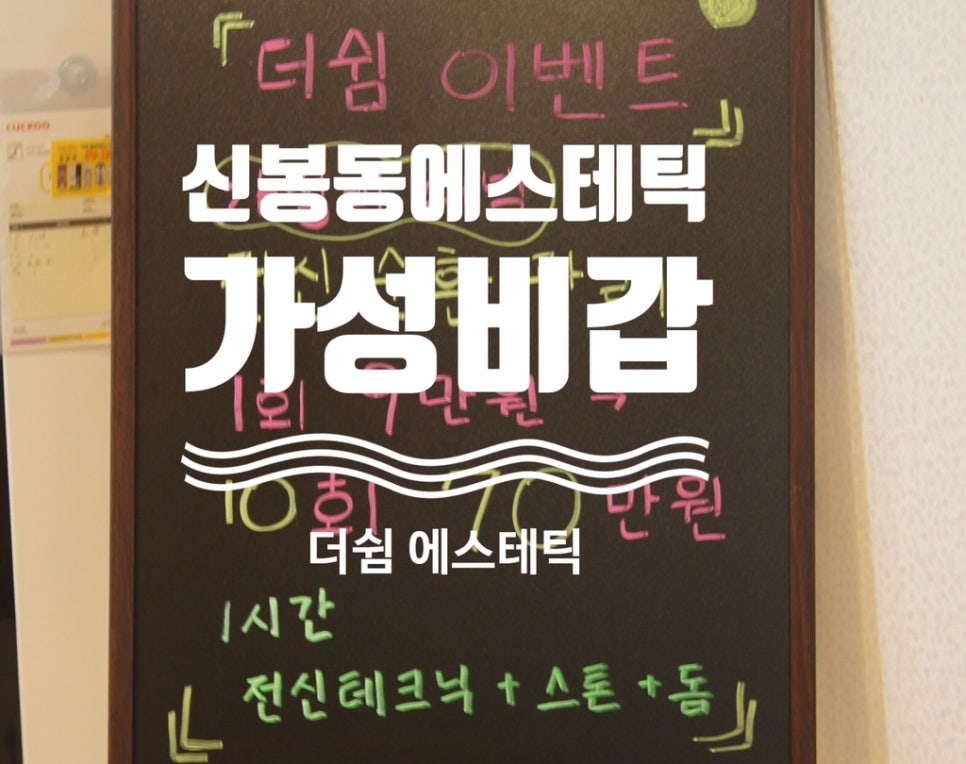 더쉼 이벤트
CUCKOO
신봉동에스테틱
가성비갑
1회 9만원
10회 70만원
더쉼 에스테틱
1시간
전신테크닉 + 스톤 + 돔